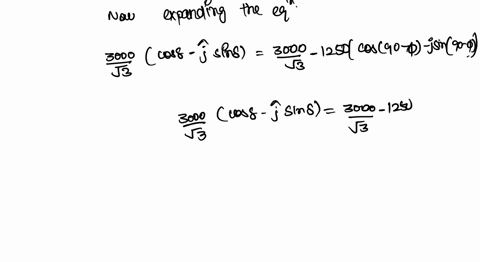 Now expanding the eqⁿ.
3000/√3 (cosδ - ĵ sinδ) = 3000/√3 - 1250(cos(90-φ) - jsin(90-φ)
3000/√3 (cosδ - ĵ sinδ) = 3000/√3 - 1250